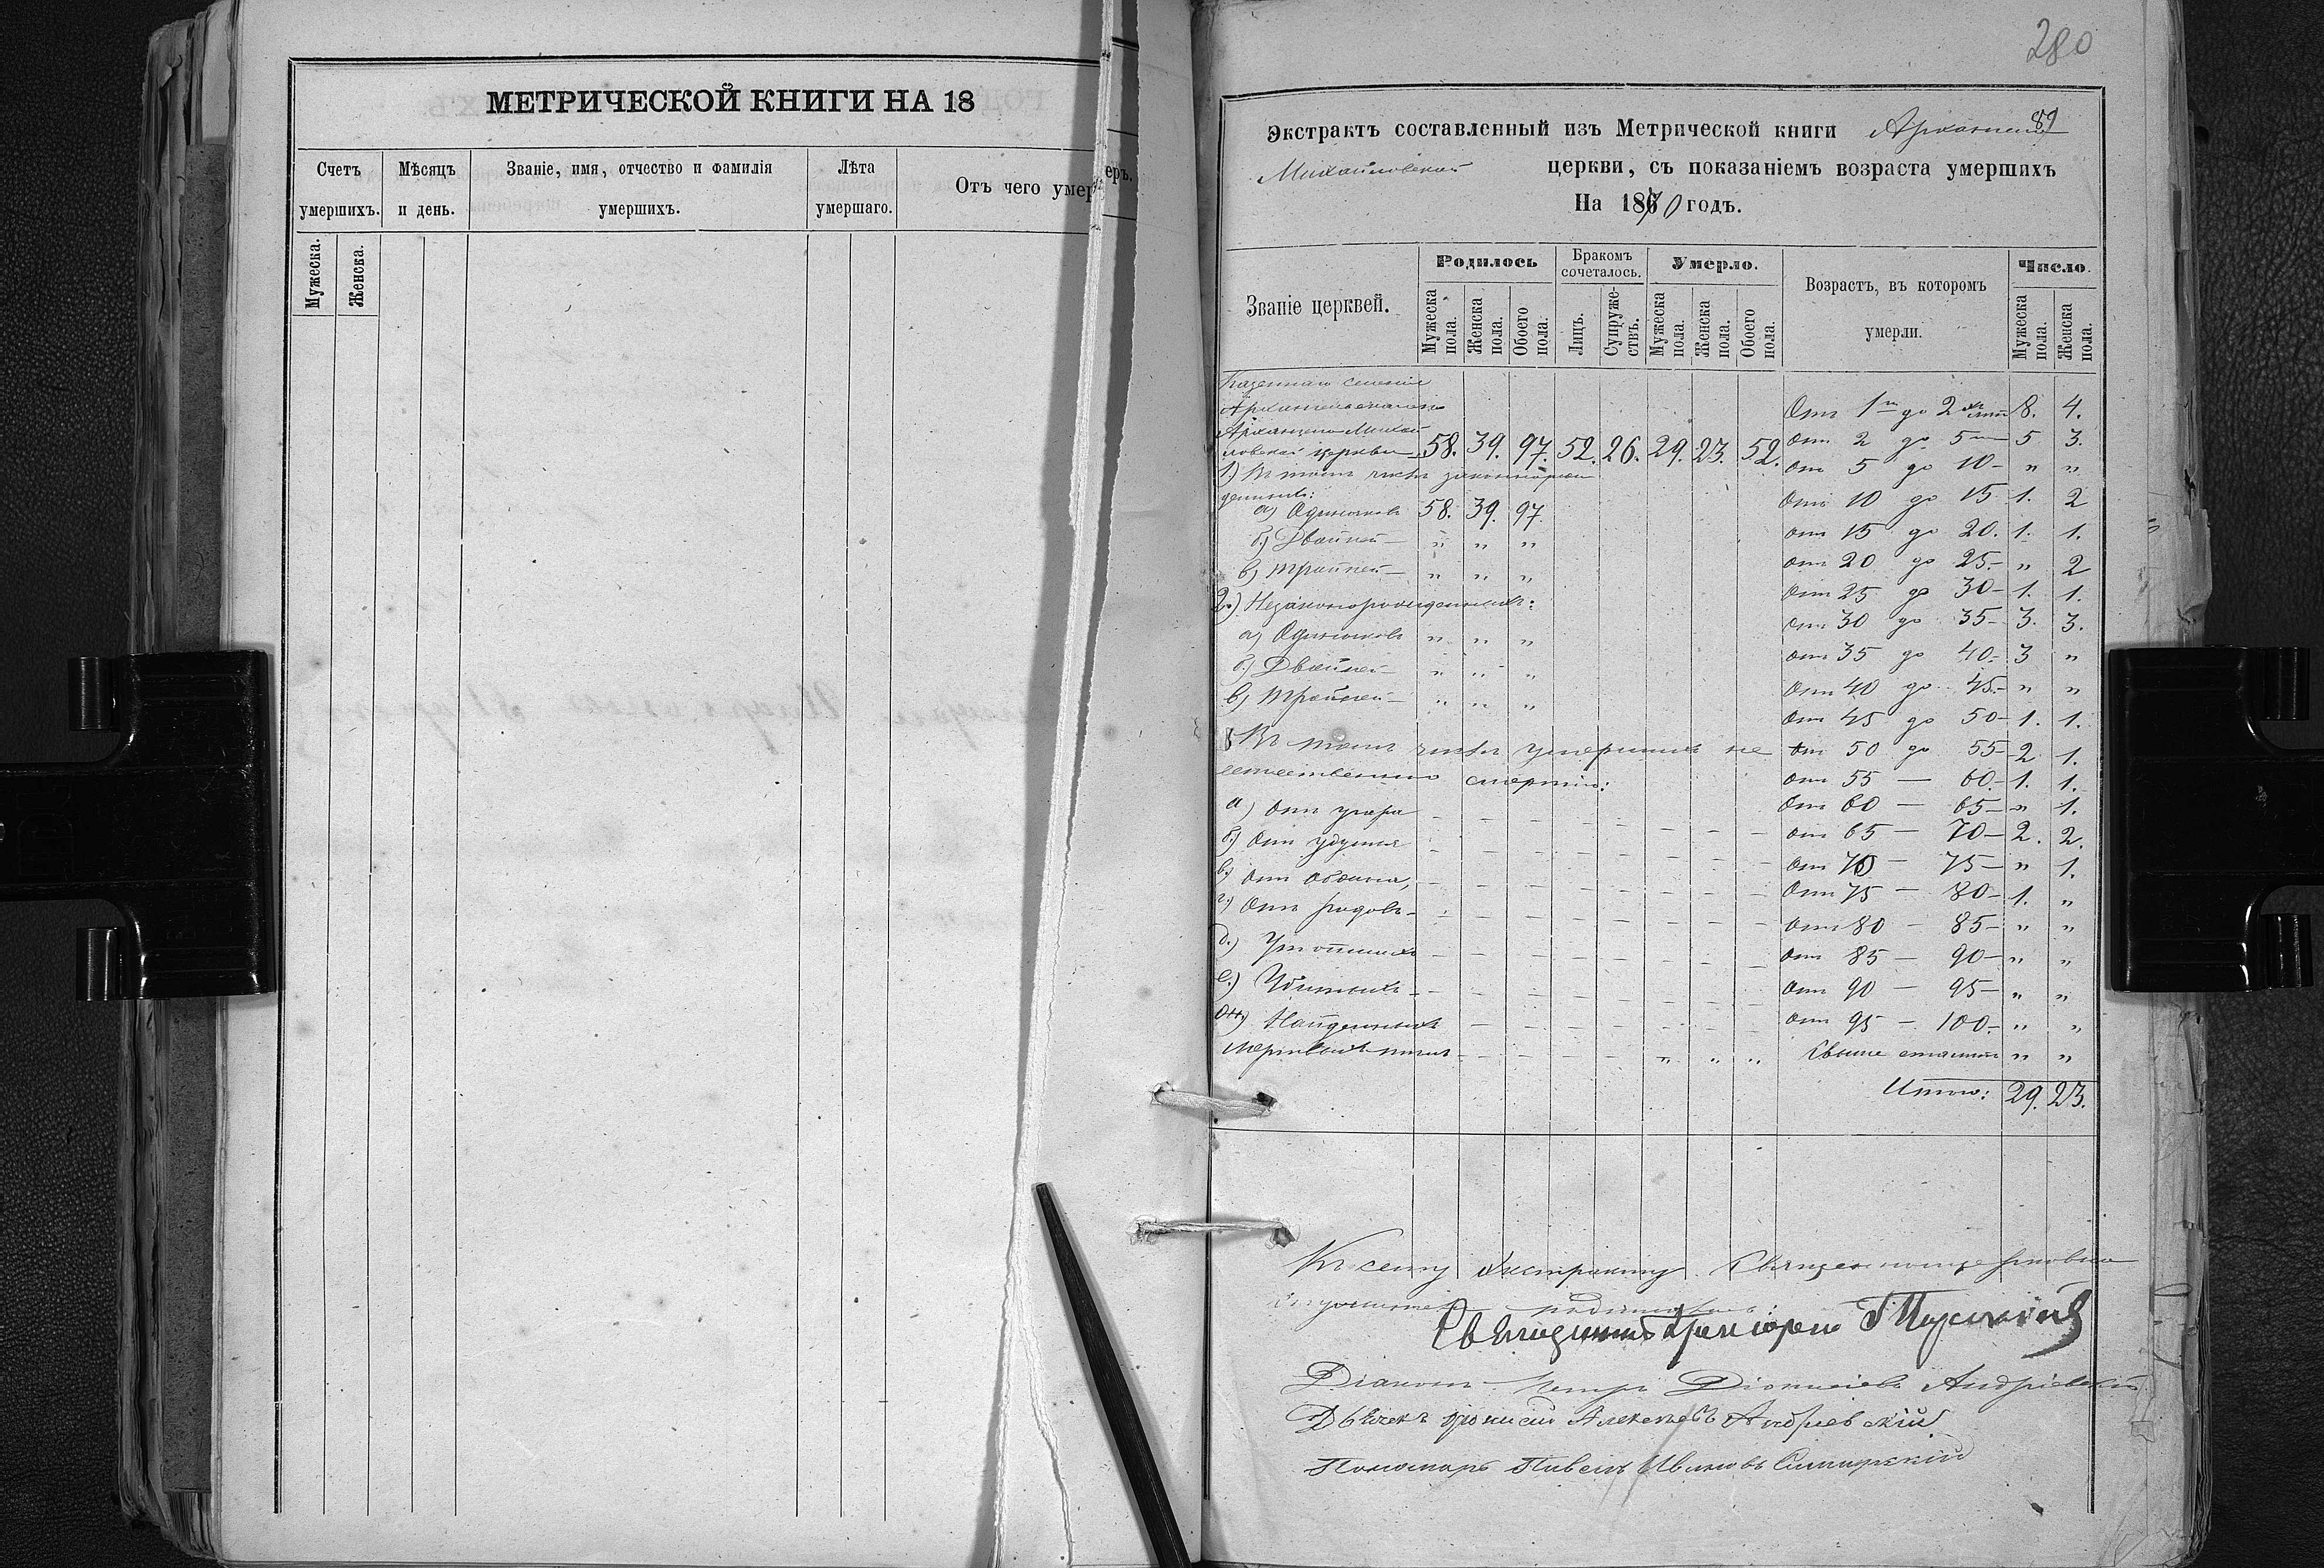 МЕТРИЧЕСКОЙ КНИГИ НА 18
Счетъ умершихъ.
Мужеска.
Женска.
Мѣсяцъ и день.
Званіе, имя, отчество и фамилія умершихъ.
Лѣта умершаго.
Отъ чего умер
еръ.
280
89
Экстрактъ составленный изъ Метрической книги
Михайловской церкви, съ показаніемъ возраста умершихъ
На 1870 годъ.
Званіе церквей.
Родилось
Мужеска пола.
Женска пола.
Обоего пола.
Бракомъ сочеталось.
Лицъ.
Супружествъ.
Умерло.
Мужеска пола.
Женска пола.
Обоего пола.
Возрастъ, въ которомъ умерли.
Число.
Мужеска пола.
Женска пола.
Архангело-Михай
ловской церкви 58. 39. 97. 52. 26. 29. 23. 52.
1) Въ томъ числѣ законнорож
денныхъ:
а) Одиночекъ 58. 39. 97.
б) Двойней — „ „ „
в) Тройней — „ „ „
2.) Незаконнорожденныхъ:
а) Одиночекъ „ „ „
б) Двойней — „ „ „
в) Тройней — „ „ „
Въ томъ числѣ умершихъ не
естественною смертію:
а) Отъ угара
б) Отъ удушья
в)
г) Отъ родовъ
д.) Утопшихъ
е.) Убитыхъ
ж) Найденныхъ
мертвыхъ тѣлъ „ „ „
Отъ 1 до 2 8. 4.
Отъ 2 до 5 5 3.
От 5 до 10 — „ „
Отъ 10 до 15 1. 2
отъ 15 до 20. 1. 1.
отъ 20 до 25. — „ 2
Отъ 25 до 30 — 1. 1.
Отъ 30 до 35 — 3. 3.
отъ 35 до 40. — 3 „
Отъ 40 до 45. — „ „
Отъ 45 до 50 — 1. 1.
От 50 до 55 — 2 1.
От 55 — 60. — 1. 1.
От 60 — 65 — „ 1.
отъ 65 — 70 — 2. 2.
От 70 — 75 — „ 1.
Отъ 75 — 80 — 1. „
Отъ 80 — 85 — „ „
Отъ 85 — 90 — „ „
Отъ 90 — 95 — „ „
Отъ 95 — 100. — „ „
Свыше „ „
Итого: 29. 23.
Къ сему экстракту
Священникъ Григорій
Діаконъ Петръ Діонисіевъ Андріевскій
Дьячекъ Алексѣевъ Андріевскій
Пономарь Павелъ Ивановъ